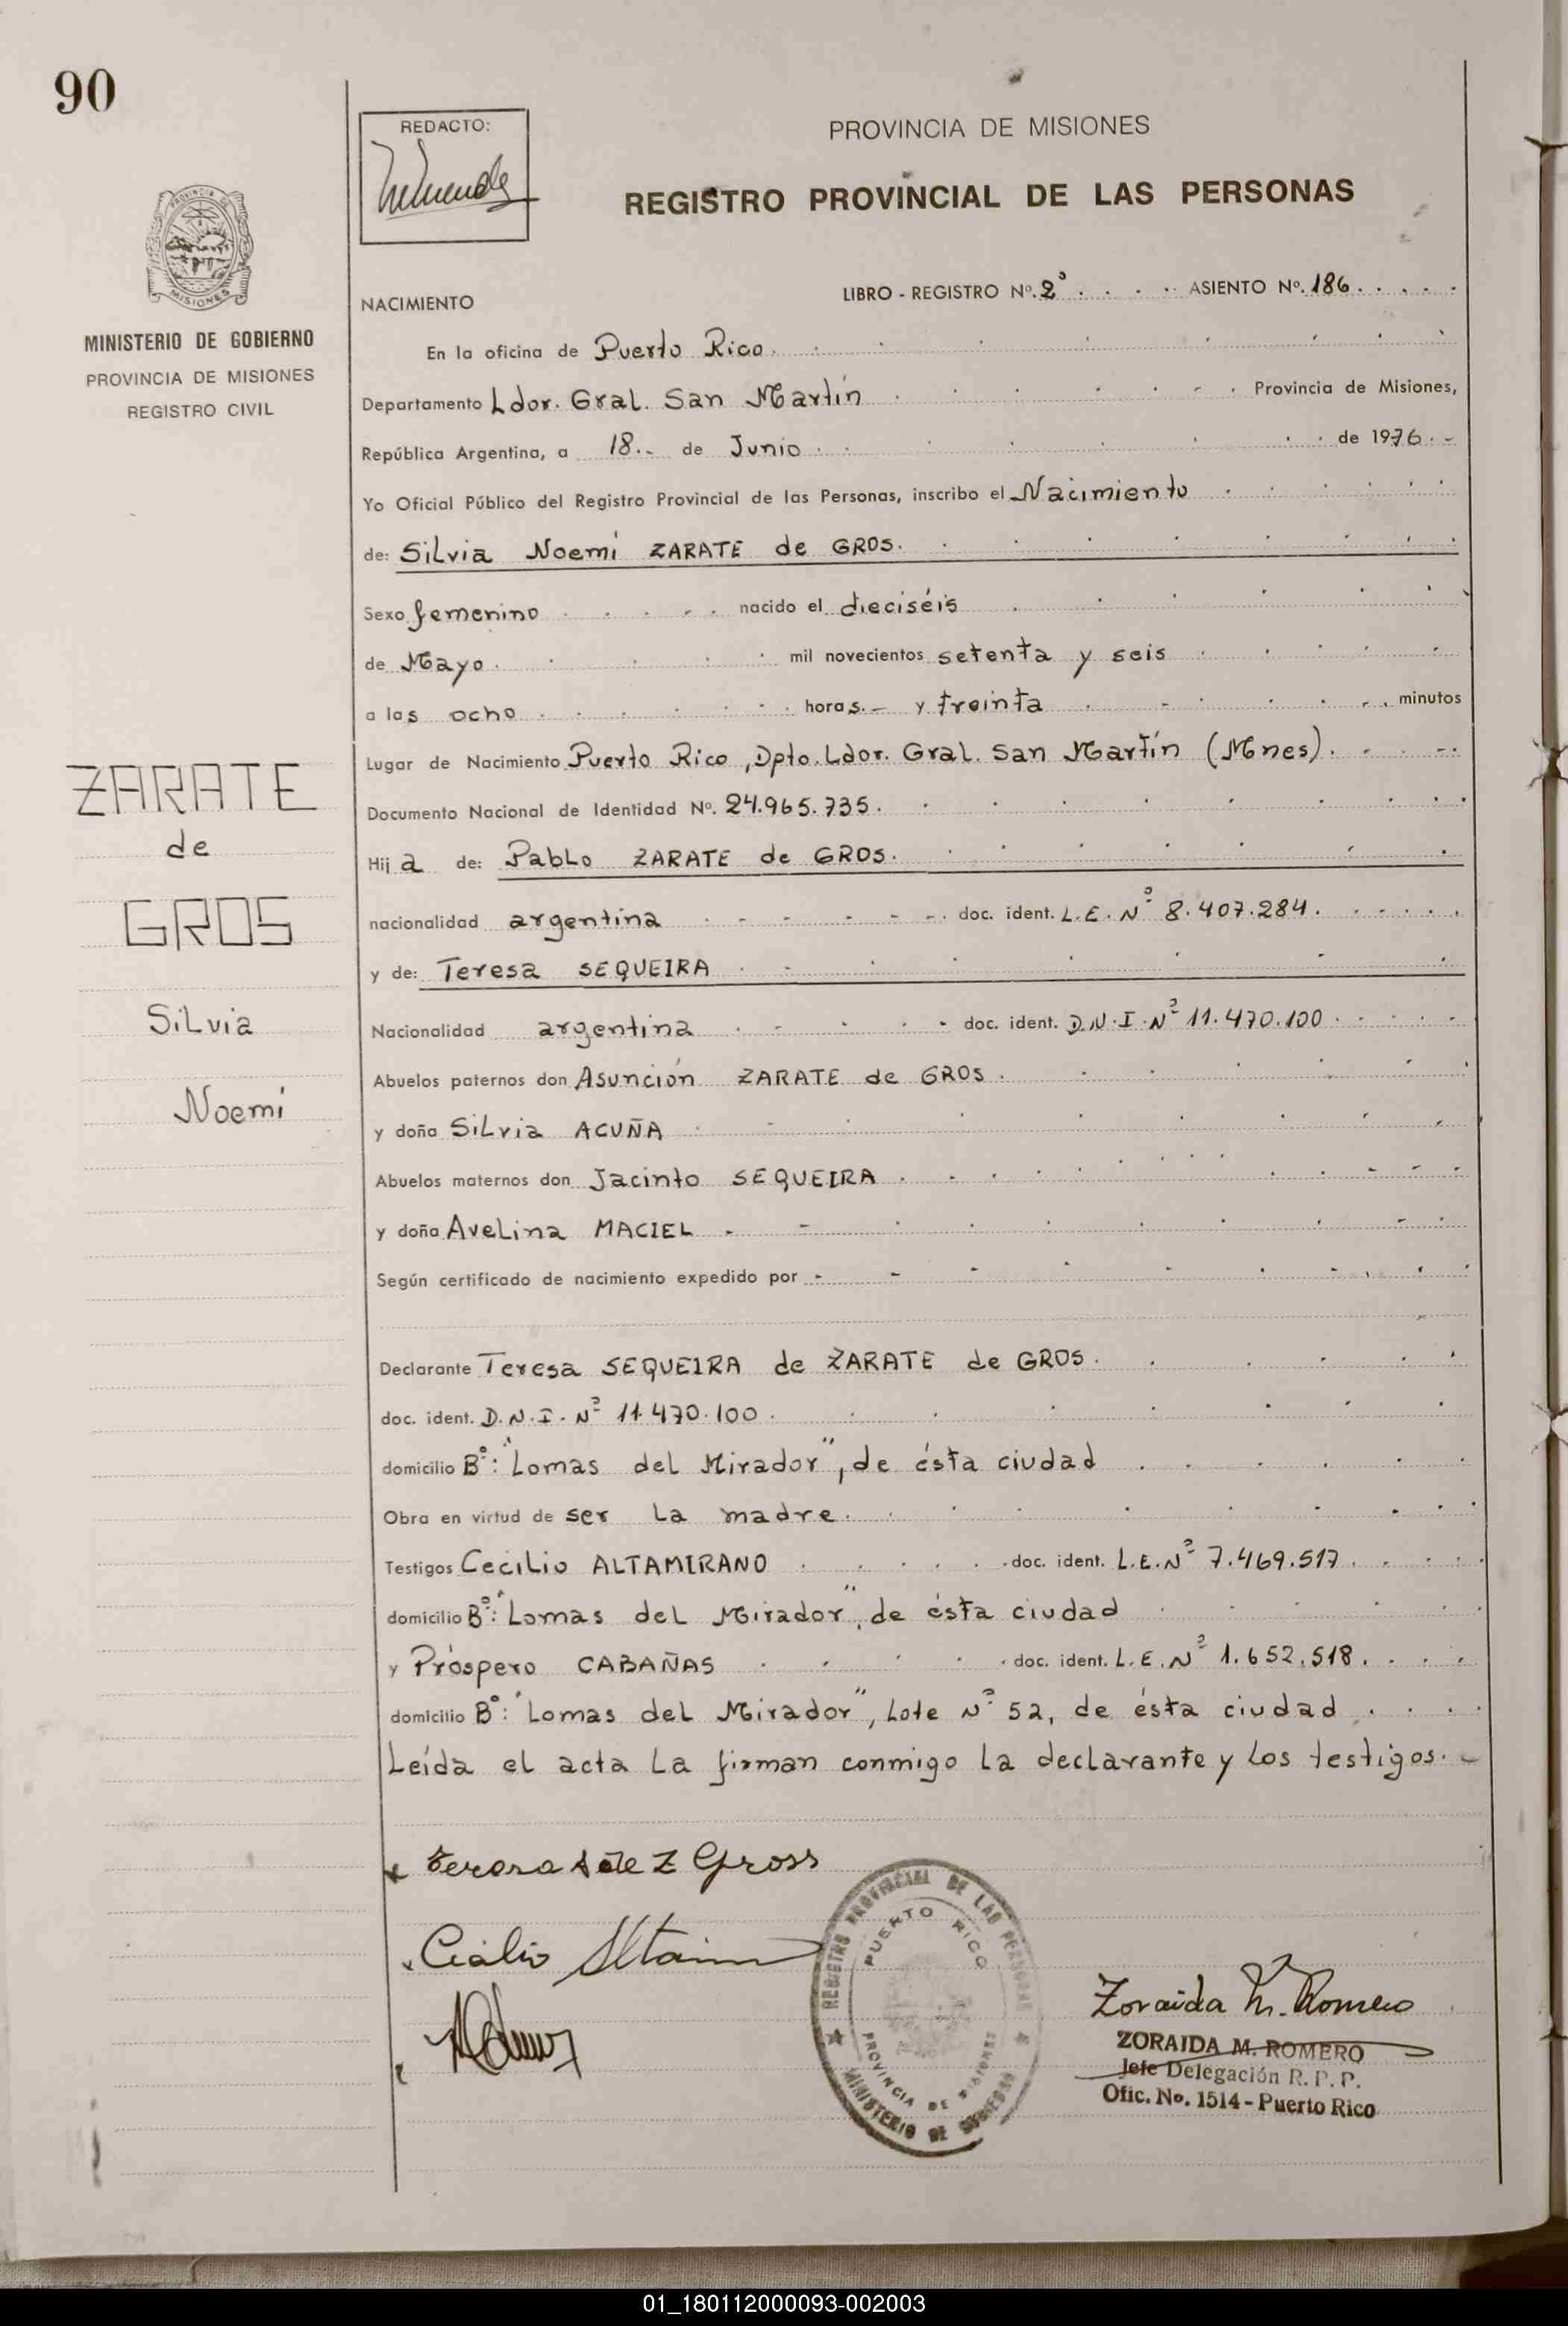 90
REDACTO:
PROVINCIA DE MISIONES
REGISTRO PROVINCIAL DE LAS PERSONAS
PROVINCIA DE
MISIONES
MINISTERIO DE GOBIERNO
PROVINCIA DE MISIONES
REGISTRO CIVIL
NACIMIENTO
LIBRO - REGISTRO Nº. 2º ASIENTO Nº. 186
En la oficina de Puerto Rico.
Departamento Ldor. Gral. San Martín Provincia de Misiones,
República Argentina, a 18.- de Junio de 1976.-
Yo Oficial Público del Registro Provincial de las Personas, inscribo el Nacimiento
de: Silvia Noemí ZARATE de GROS.
Sexo femenino nacido el dieciséis
de Mayo. mil novecientos setenta y seis
a las ocho horas.- y treinta minutos
Lugar de Nacimiento Puerto Rico, Dpto. Ldor. Gral. San Martín (Mnes).
Documento Nacional de Identidad Nº. 24.965.735.
Hija de: Pablo ZARATE de GROS.
nacionalidad argentina doc. ident. L.E. Nº 8.407.284.
y de: Teresa SEQUEIRA
Nacionalidad argentina doc. ident. D.N.I. Nº 11.470.100
Abuelos paternos don Asunción ZARATE de GROS.
y doña Silvia ACUÑA
Abuelos maternos don Jacinto SEQUEIRA
y doña Avelina MACIEL
Según certificado de nacimiento expedido por
Declarante Teresa SEQUEIRA de ZARATE de GROS.
doc. ident. D.N.I. Nº 11.470.100.
domicilio Bº: "Lomas del Mirador", de ésta ciudad
Obra en virtud de ser la madre.
Testigos Cecilio ALTAMIRANO doc. ident. L.E. Nº 7.469.517.
domicilio Bº: "Lomas del Mirador", de ésta ciudad
y Próspero CABAÑAS doc. ident. L.E. Nº 1.652.518.
domicilio Bº: "Lomas del Mirador", Lote Nº 52, de ésta ciudad
Leída el acta la firman conmigo la declarante y los testigos.-
ZARATE
de
GROS
Silvia
Noemí
Teresa S de Z Gross
REGISTRO PROVINCIAL DE LAS PERSONAS
PUERTO RICO
PROVINCIA DE MISIONES
MINISTERIO DE GOBIERNO
Zoraida M. Romero
ZORAIDA M. ROMERO
Jefe Delegación R. P. P.
Ofic. No. 1514 - Puerto Rico
01_180112000093-002003